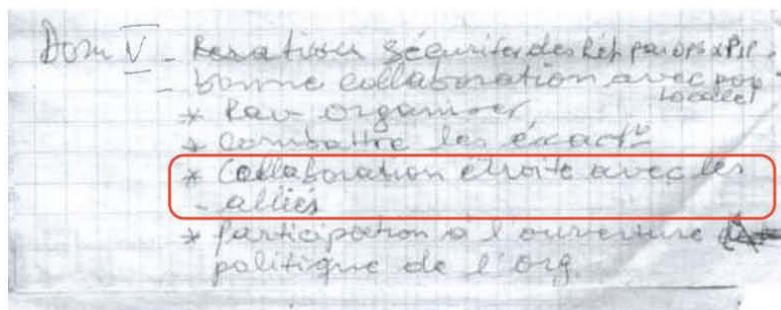 Dom V - Relation sécuritér des Réf par ops x PIP
- bonne collaboration avec pop
locale
* Rav organiser
* combattre les exact°
* Collaboration étroite avec les
- alliés
* participation à l'ouverture
politique de l'org.